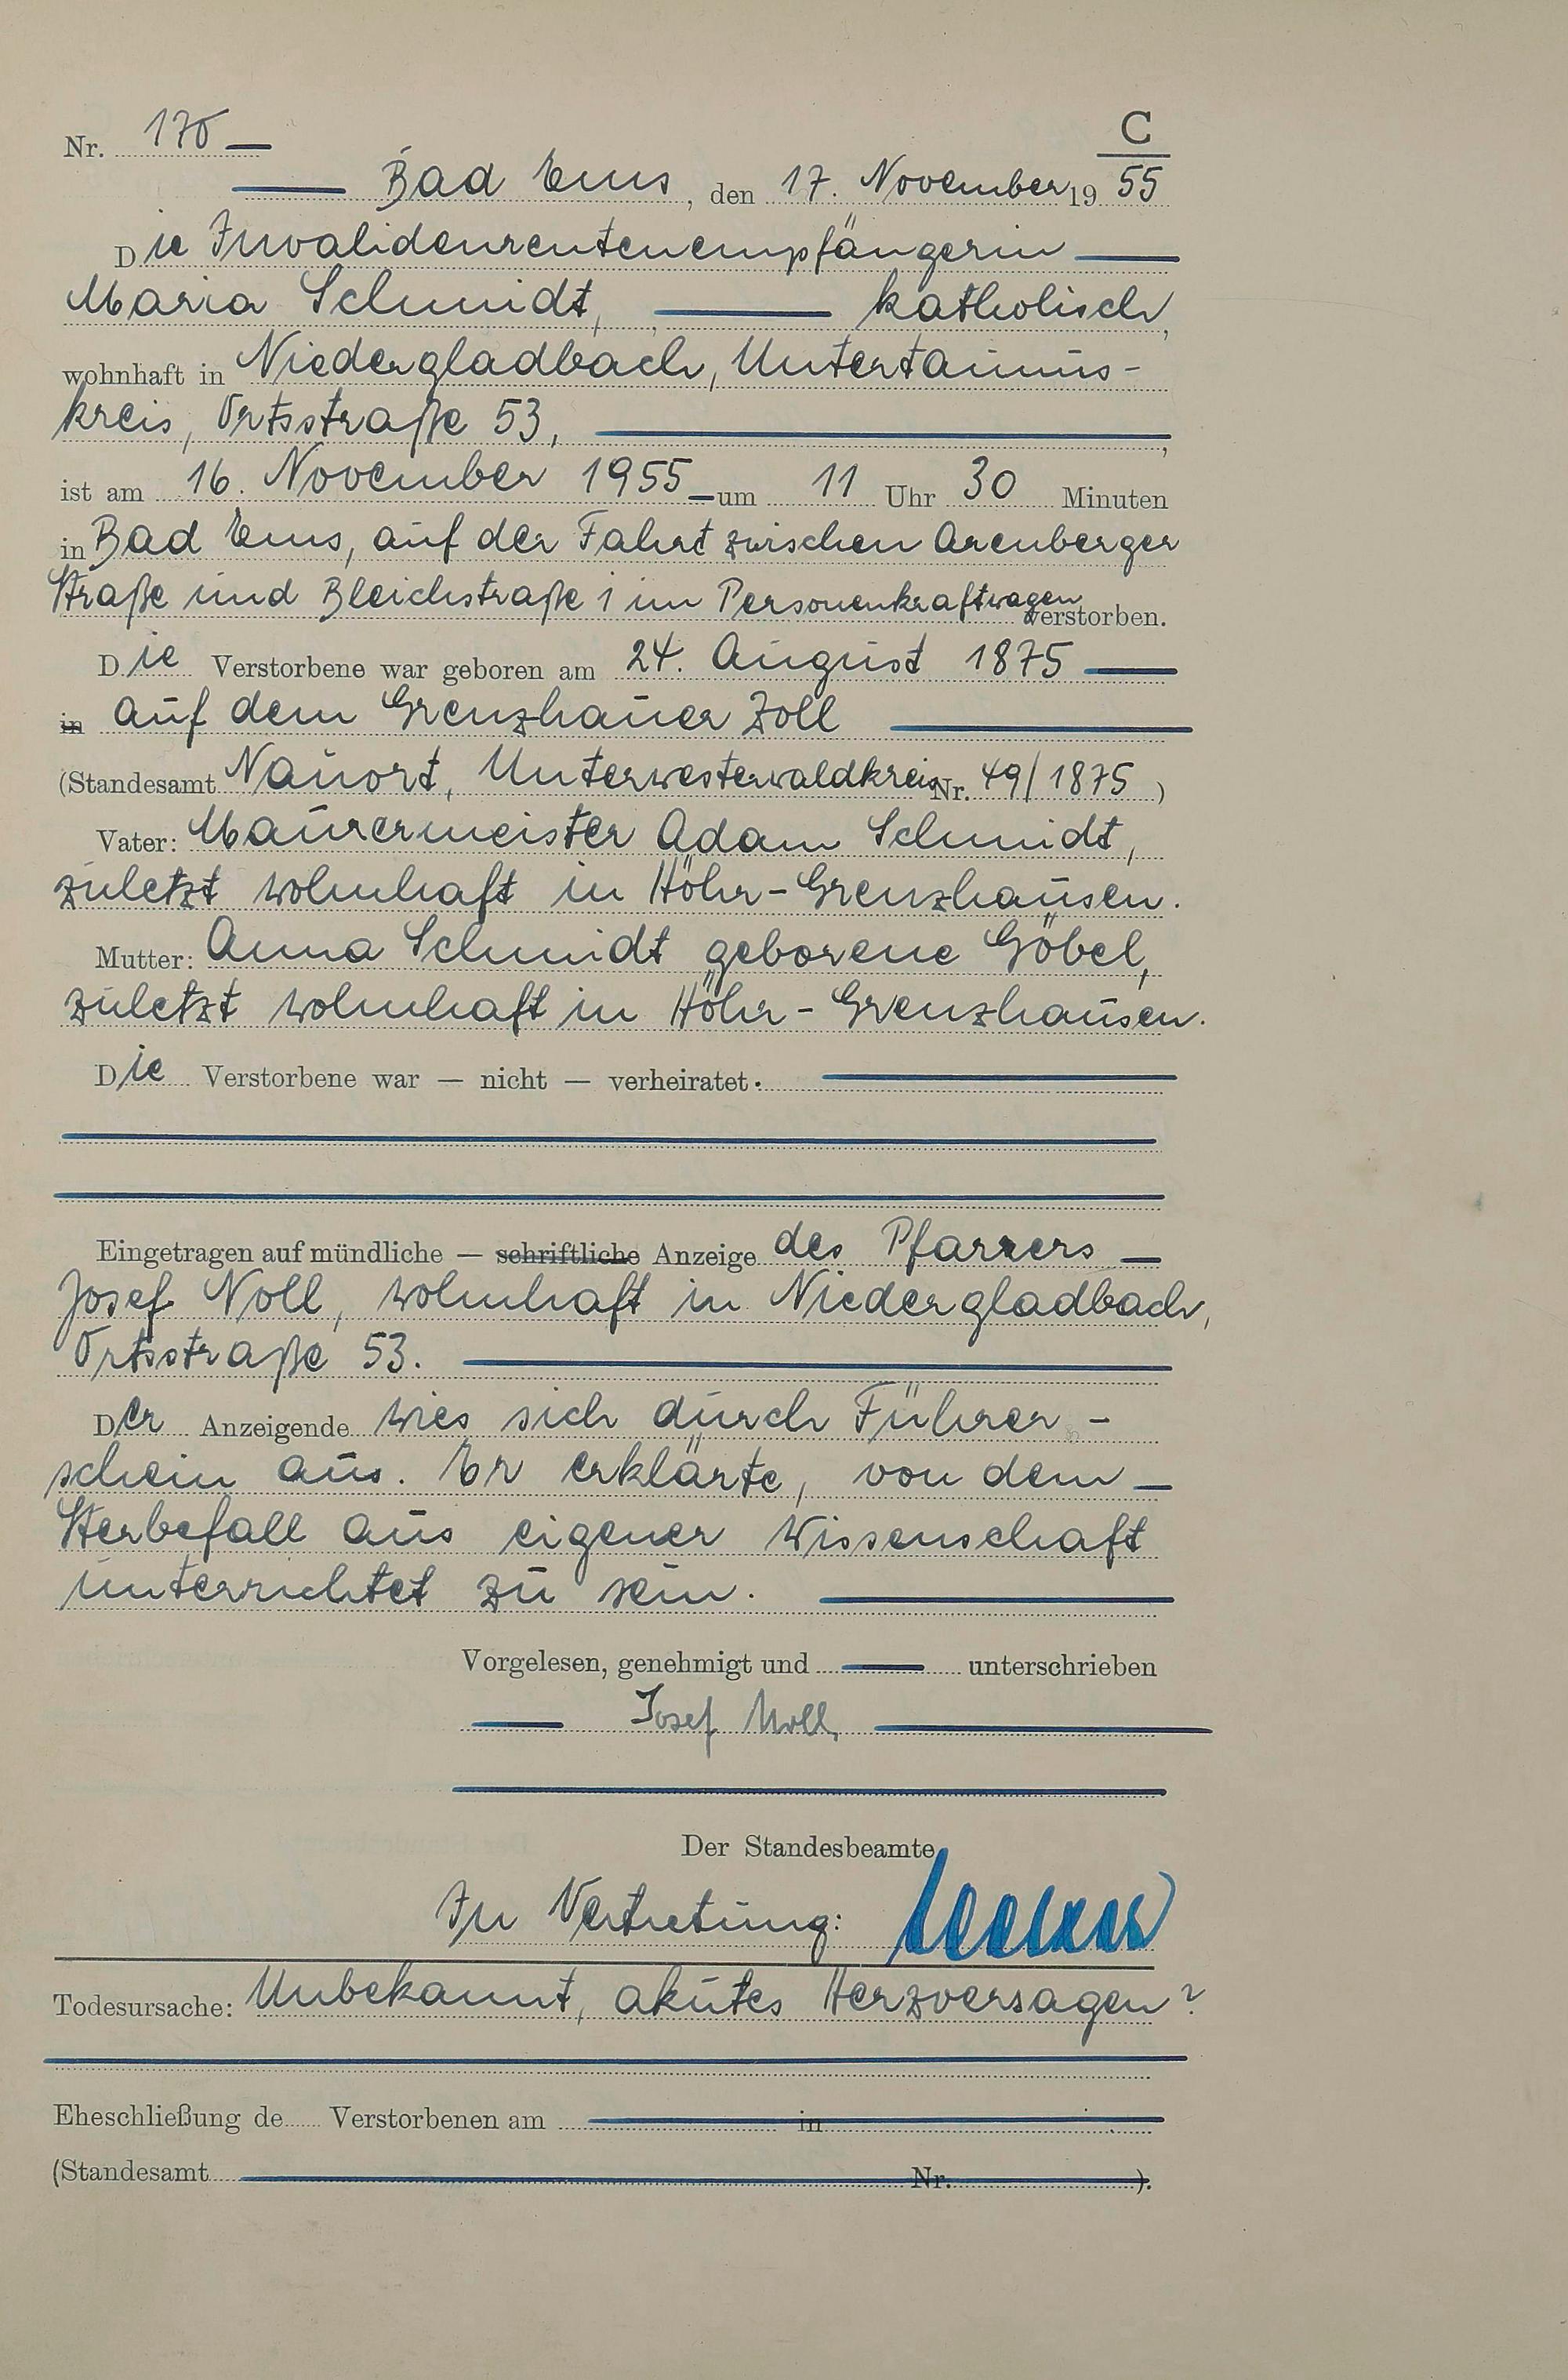 C
Nr. 170
Bad Ems, den 17. November 19 55
Die Invalidenrentenempfängerin
Maria Schmidt, katholisch,
wohnhaft in Niedergladbach, Untertaunus-
kreis, Ortsstraße 53,
ist am 16. November 1955 um 11 Uhr 30 Minuten
in Bad Ems, auf der Fahrt zwischen Arenberger
Straße und Bleichstraße 1 im Personenkraftwagen verstorben.
Die Verstorbene war geboren am 24. August 1875
in auf dem Grenzhauer Zoll
(Standesamt Nauort, Unterwesterwaldkreis Nr. 49/1875)
Vater: Maurermeister Adam Schmidt,
zuletzt wohnhaft in Höhr-Grenzhausen.
Mutter: Anna Schmidt geborene Göbel,
zuletzt wohnhaft in Höhr-Grenzhausen.
Die Verstorbene war — nicht — verheiratet.
Eingetragen auf mündliche — schriftliche Anzeige des Pfarrers
Josef Noll, wohnhaft in Niedergladbach,
Ortsstraße 53.
Der Anzeigende wies sich durch Führer-
schein aus. Er erklärte, von dem
Sterbefall aus eigener Wissenschaft
unterrichtet zu sein.
Vorgelesen, genehmigt und unterschrieben
Josef Noll,
Der Standesbeamte
In Vertretung:
Todesursache: Unbekannt, akutes Herzversagen?
Eheschließung de Verstorbenen am in
(Standesamt Nr. ).